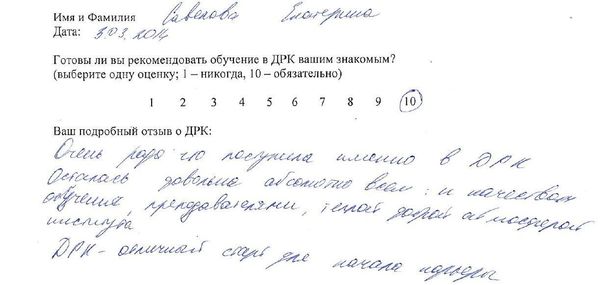 Имя и Фамилия Савекова Екатерина
Дата: 5.03.2014
Готовы ли вы рекомендовать обучение в ДРК вашим знакомым?
(выберите одну оценку; 1 – никогда, 10 – обязательно)
1 2 3 4 5 6 7 8 9 10
Ваш подробный отзыв о ДРК:
Очень рада что поступила именно в ДРК
Осталась довольна абсолютно всем: и качеством
обучения, преподавателями, теплой доброй атмосферой
института
ДРК – отличный старт для начала карьеры